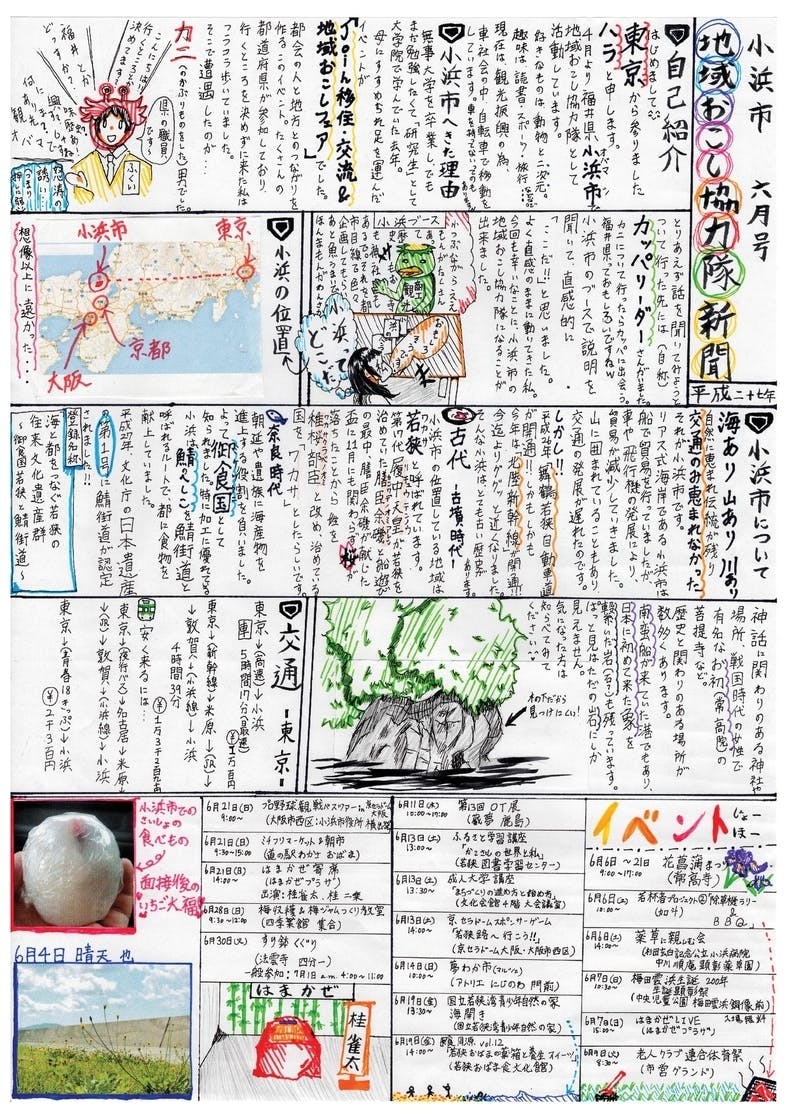 小浜市 六月号
地域おこし協力隊新聞
平成二十七年
自己紹介
はじめまして
東京から参りました
ハラと申します。
4月より福井県小浜市で
地域おこし協力隊として
活動しています。
好きなものは動物と二次元。
趣味は読書・スポーツと旅行
現在は、観光振興の為
車社会の中、自転車で移動を
しています。
小浜市へきた理由
無事大学を卒業しても
まだ勉強したくて、研究生として
大学院で学んでいた去年。
母にすすめられ足を運んだ
イベントが
「Join移住・交流&
地域おこしフェア」でした。
都会の人と地方とのつながりを
作るこのイベント。たくさんの
都道府県が参加しており
行くところを決めずに来た私は
フラフラ歩いていました。
そこで遭遇したのが…
カニのかぶりものをした男でした。
県の職員です。
ふくい
とりあえず話を聞いてみようと
ついて行った先には(自称)
カッパリーダーさんがいました。
カニについて行ったらカッパに出会う。
福井県っておもしろいですねw
小浜市のブースで説明を
聞いて、直感的に
「ここだ!!」と思いました。
よく直感のままに動いてきた私。
今回も幸いなことに、小浜市の
地域おこし協力隊になることが
出来ました。
小浜ブース
小浜って
どこ?
小浜の位置
小浜市
東京
京都
大阪
想像以上に遠かった…
小浜市について
海あり山あり川あり
自然に恵まれ伝統が残り
交通のみ恵まれなかった
それが小浜市です。
リアス式海岸である小浜市は
船で貿易を行っていましたが
車や飛行機の発展により、
貿易が減少していきました。
山に囲まれていることもあり、
交通の発展が遅れたのです。
しかし!!
平成26年「舞鶴若狭自動車道
が開通!!
今年は、北陸新幹線が開通!!
今迄よりググッと近くなりました。
そんな小浜はとても古い歴史が
古代 ー古墳時代ー
小浜市の位置している地域は
若狭と呼ばれています。
第17代履中天皇が若狭を
治めていた膳臣余磯と船遊び
の最中、膳臣余磯が献じた
盃に11月にも関わらず桜が
落ちたことから、姓を
稚桜部臣と改め治めている
国を「ワカサ」としたらしいです。
奈良時代
朝廷や遺族に海産物を
進上する役割を負いました。
よって御食国として
知られます。特に加工に優れている
小浜は、鯖へしこを鯖街道と
呼ばれるルートで、都に食物を
献上していました。
平成27年文化庁の日本遺産
の第1号に鯖街道が認定
されました!!
登録名称
海と都をつなぐ若狭の
往来文化遺産群
~御食国若狭と鯖街道~
神話に関わりのある神社や
場所、戦国時代の女性で
有名なお初(常高院)の
菩提寺など。
歴史と関わりのある場所が
数多くあります。
南蛮船が来ていた港でもあり、
日本に初めて来た象を
繋いだ岩(右?)も残っています。
ぱっと見はただの岩石にしか
見えません。
気になった方は
知らべてみて
ください
木の下だから
見つけにくい!
交通 ー東京ー
東京→(高速)→小浜
5時間17分(最速)
東京→(新幹線)→米原→(JR)→
→敦賀→(小浜線)→小浜
4時間39分
安く来るには…
東京→(夜行バス)→名古屋→米原
→(JR)→敦賀→(小浜線)→小浜
東京→(青春18きっぷ)→小浜
¥2千3百円
イベントじょーほー
6月6日~21日 花菖蒲まつり
9:00~17:00 (常高寺)
6月6日(土) 若狭者プロジェクト①「除草機ラリー
10:00~ (加斗) & BBQ」
6月6日(土) 薬草に親しむ会
14:00~ (杉田玄白記念公立小浜病院
中川順庵顕彰薬草園)
6月7日(日) 梅田雲浜生誕200年
10:30~ 生誕顕彰祭
(中央児童公園 梅田雲浜銅像前)
6月7日(日) はまかぜLIVE 入場無料
15:00~ (はまかぜプラザ)
6月9日(火) 老人クラブ連合体育祭
8:30~ (市営グランド)
6月11日(木) 第13回OT展
10:00~17:00
6月13日(土) ふるさと学習講座
13:00~ 「かこさんの世界と私」
(若狭図書学習センター)
6月13日(土) 成人大学講座
13:30~ 「まちづくりの進め方と始め方」
(文化会館4階大会議室)
6月13日(土) 京セラドームスポンサーゲーム
14:00~ 「若狭路へ行こう!!」
(京セラドーム大阪・大阪市西区)
6月14日(日) 夢わか市(マルシェ)
10:00~ (アトリエにじのわ門前)
6月19日(金) 国立若狭湾青少年自然の家
13:30~ 海開き
(国立若狭湾青少年自然の家)
6月19日(金) vol.12
14:00~ 「若狭おばまの薬箱と養生スイーツ」
(若狭おばま食文化館)
6月21日(日) プロ野球観戦バスツアーin京セラドーム大阪
9:00~ (大阪市西区:小浜市役所横出発)
6月21日(日) ミチフリマーケット&朝市
9:30~15:00 (道の駅わかさおばま)
6月21日(日) はまかぜ寄席
14:00~ (はまかぜプラザ)
出演:桂雀太、桂二乗
6月28日(日) 梅収穫&梅ジャムつくり教室
9:30~12:00 (四季菜館 集合)
6月30日(火) すり鉢くぐり
(法雲寺 四分一)
一般参加:7月1日a.m.4:00~11:00
はまかぜ
桂雀太
小浜市での
さいしょの
食べもの
面接後の
いちご大福
6月4日 晴天也